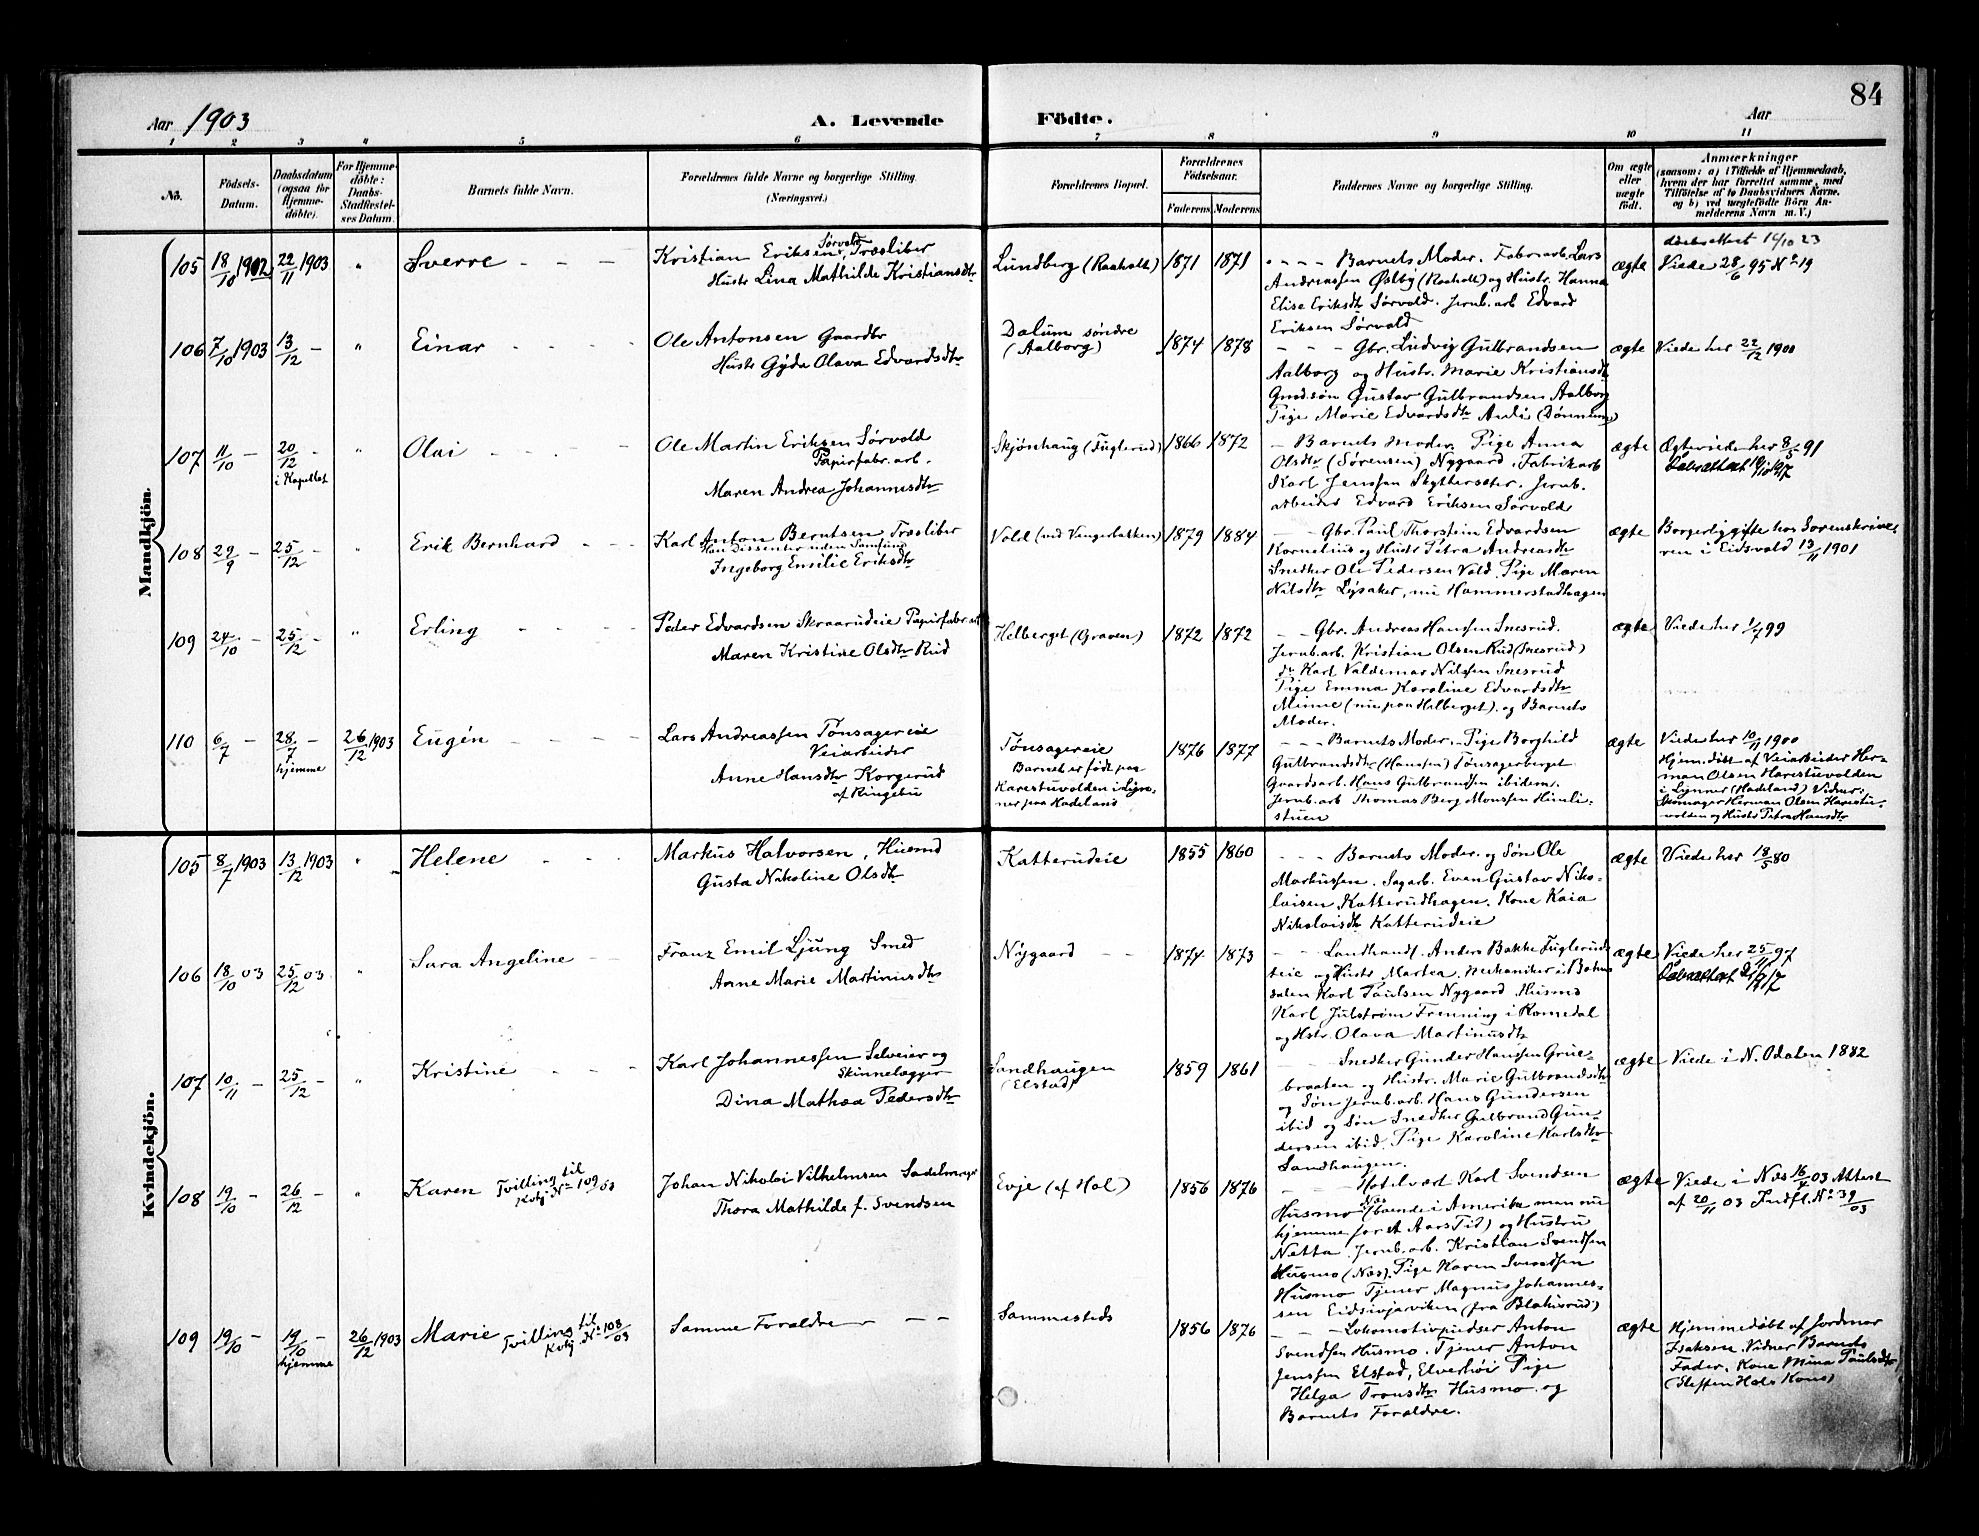 84
Aar 1903
A. Levende
Födte.
Aar
1 2 3 4 5 6 7 8 9 10 11
No.
Födsels-
Datum.
Daabsdatum
(ogsaa for
Hjemme-
döbte).
For Hjemme-
döbte:
Daabs-
Stadfæstel-
ses Datum.
Barnets fulde Navn.
Forældrenes fulde Navne og borgerlige Stilling.
(Næringsvei.)
Forældrenes Bopæl.
Forældrenes
Födselsaar.
Faderens Moderens
Faddernes Navne og borgerlige Stilling.
Om ægte
eller
uægte
födt.
Anmærkninger
(saasom: a) i Tilfælde af Hjemmedaab,
hvem der har forrettet samme, med
Tilföielse af to Daabsvidners Navne,
og b) ved uægtefödte Börn An-
melderens Navn m. V.)
Mandkjön.
105 18/10 1902 22/11 1903 " Sverre - - -
Kristian Eriksen Sørvold, Træsliber
Hustr Lina Mathilde Kristiansdtr
Lundberg (Raaholt) 1871 1871
" - - - Barnets Moder. Fabr.arb. Lars
Andreassen Østby (Raaholt) og Hustr. Hanna
Elise Eriksdtr Sørvold. Jernb.arb Edvard
Eriksen Sørvold
ægte
daabsattest 16/10 23
Viede 28/6 95 No 19
106 7/10 1903 13/12 - " Einar - - - -
Ole Antonsen Gaardbr
Hustr Gyda Olava Edvardsdtr
Dalum søndre
(Aalborg)
1874 1878
- - - Gbr. Ludvig Gulbrandsen
Aalborg og Hustr. Marie Kristiansdtr
Grndsøn Gustav Gulbrandsen Aalborg
Pige Marie Edvardsdtr Anli (Dønnum)
ægte Viede her 22/12 1900
107 11/10 - 20/12 - " Olai - - - -
i Kapellet
Ole Martin Eriksen Sørvold
Papirfabr.arb.
Maren Andrea Johannesdtr
Skjønhaug (Fuglerud) 1866 1872
- Barnets Moder. Pige Anna
Olsdtr (Sørensen) Nygaard. Fabrikarb
Karl Jenssen Skytterseter. Jernb.
arbeider Edvard Eriksen Sørvold
ægte Ægteviede her 8/5 91
108 29/9 - 25/12 " Erik Bernhard - - -
Karl Anton Berntsen Træsliber
Han Dissenter uden Samfund
Ingeborg Emilie Eriksdtr
Vold (ved Vengerbakken) 1879 1884
- - Gbr. Paul Thorstein Edvardsen
Kornelius og Hustr Petra Andreasdtr
Snedker Ole Pedersen Vold. Pige Maren
Nilsdtr Lysaker, nu Hammerstadhagen
ægte Borgerlig gifte hos Sorenskrive-
ren i Eidsvold 13/11 1901
109 24/10 - 25/12 - " Erling - - - -
Peder Edvardsen Skraarudeie Papirfabr.arb
Maren Kristine Olsdtr Rud
Helberget (Graven) 1872 1872
- - Gbr. Andreas Hansen Snesrud.
Jernb.arb. Kristian Olsen Rud (Snesrud)
do Karl Valdemar Nilssen Snesrud
Pige Emma Karoline Edvardsdtr
Minne (nu paa Helberget). og Barnets
Moder.
ægte Viede her 1/7 99
110 6/7 - 28/7 - 26/12 1903 Eugén - - - -
hjemme
Lars Andreassen Tønsagereie
Veiarbeider
Anne Hansdtr Korgerud
af Ringebu
Tønsagereie
Barnet er født paa
Harestuvolden i Lyn-
ner paa Hadeland
1876 1877
- - - Barnets Moder. - Pige Borghild
Gulbrandsdtr (Hansen) Tønsagerberget
Gaardsarb. Hans Gulbrandsen ibidem.
Jernb.arb Thomas Berg Monssen Himli-
stuen
ægte Viede her 10/11 1900
Hjem. døbt af Veiarbeider Her-
man Olsen Harestuvolden
i Lynner (Hadeland) Vidner.
Skomager Herman Olsen Harestu-
volden og Hustr Petra Hansdtr
Kvindekjön.
105 8/7 1903 13/12 1903 " Helene - - -
Markus Halvorsen, Husmd
Gusta Nikoline Olsdtr
Katterudeie 1855 1860
- - - Barnets Moder. og Søn Ole
Markussen. Sagarb. Even Gustav Niko-
laisen Katterudhagen. Kone Kaia
Nikolaisdtr Katterudeie
ægte Viede her 18/5 80
106 18/10 03 25/12 03 " Sara Angeline - -
Franz Emil Ljung Smed
Anne Marie Martinusdtr
Nygaard - - 1874 1873
- - Landhand. Anders Bakke Fuglerud-
eie og Hustr Martea. Mekaniker i Bøhns
dalen Karl Paulsen Nygaard Husmd
Karl Julstrøm Frenning i Romedal
og Hstr. Olava Martinusdtr
ægte Viede her 25/11 97
107 10/11 - 25/12 - " Kristine - - -
Karl Johannessen Selveier og
Skinnelægger
Dina Mathea Pedersdtr
Sandhaugen
(Elstad)
1859 1861
- - Snedker Gunder Hansen Grue-
braaten og Hustr. Marie Gulbrandsdtr
og Søn Jernb.arb. Hans Gundersen
ibid og Søn Snedker Gulbrand Gun-
dersen ibid. Pige Karoline Karlsdtr
Sandhaugen.
ægte Viede i N. Odalen 1882
108 19/10 - 26/12 - " Karen Tvilling til
Kvkj No 109/03
Johan Nikolai Vilhelmsen Sadelmager
Thora Mathilde f. Svendsen
Evje (af Hol) 1856 1876
- - Hotelvært Karl Svendsen
Husmo Næs (boende i Amerika men nu
hjemme for et Aars Tid) og Hustru
Netta. Jernb.arb. Kristian Svendsen
Husmo (Næs). Pige Karen Svendsen
Husmo Tjener Magnus Johannes-
sen Eidsivjarviken (fra Blakisrud)
ægte Viede i Næs 16/4 03 Attest
af 20/11 03 Indfl. No 39/03
109 19/10 - 19/10 - 26/12 1903 Marie Tvilling til
hjemme Kvkj No 108/03
Samme Forældre - -
Sammesteds 1856 1876
- - - Lokomotivpudser Anton
Svendsen Husmo. Tjener Anton
Jenssen Elstad, Elverhøi Pige
Helga Tronsdtr Husmo. og
Barnets Forældre.
ægte Hjemmedøbt af Jordmor
Isaksen. Vidner Barnets
Fader. Kone Mina Paulsdtr
(Steffen Hols Kone)